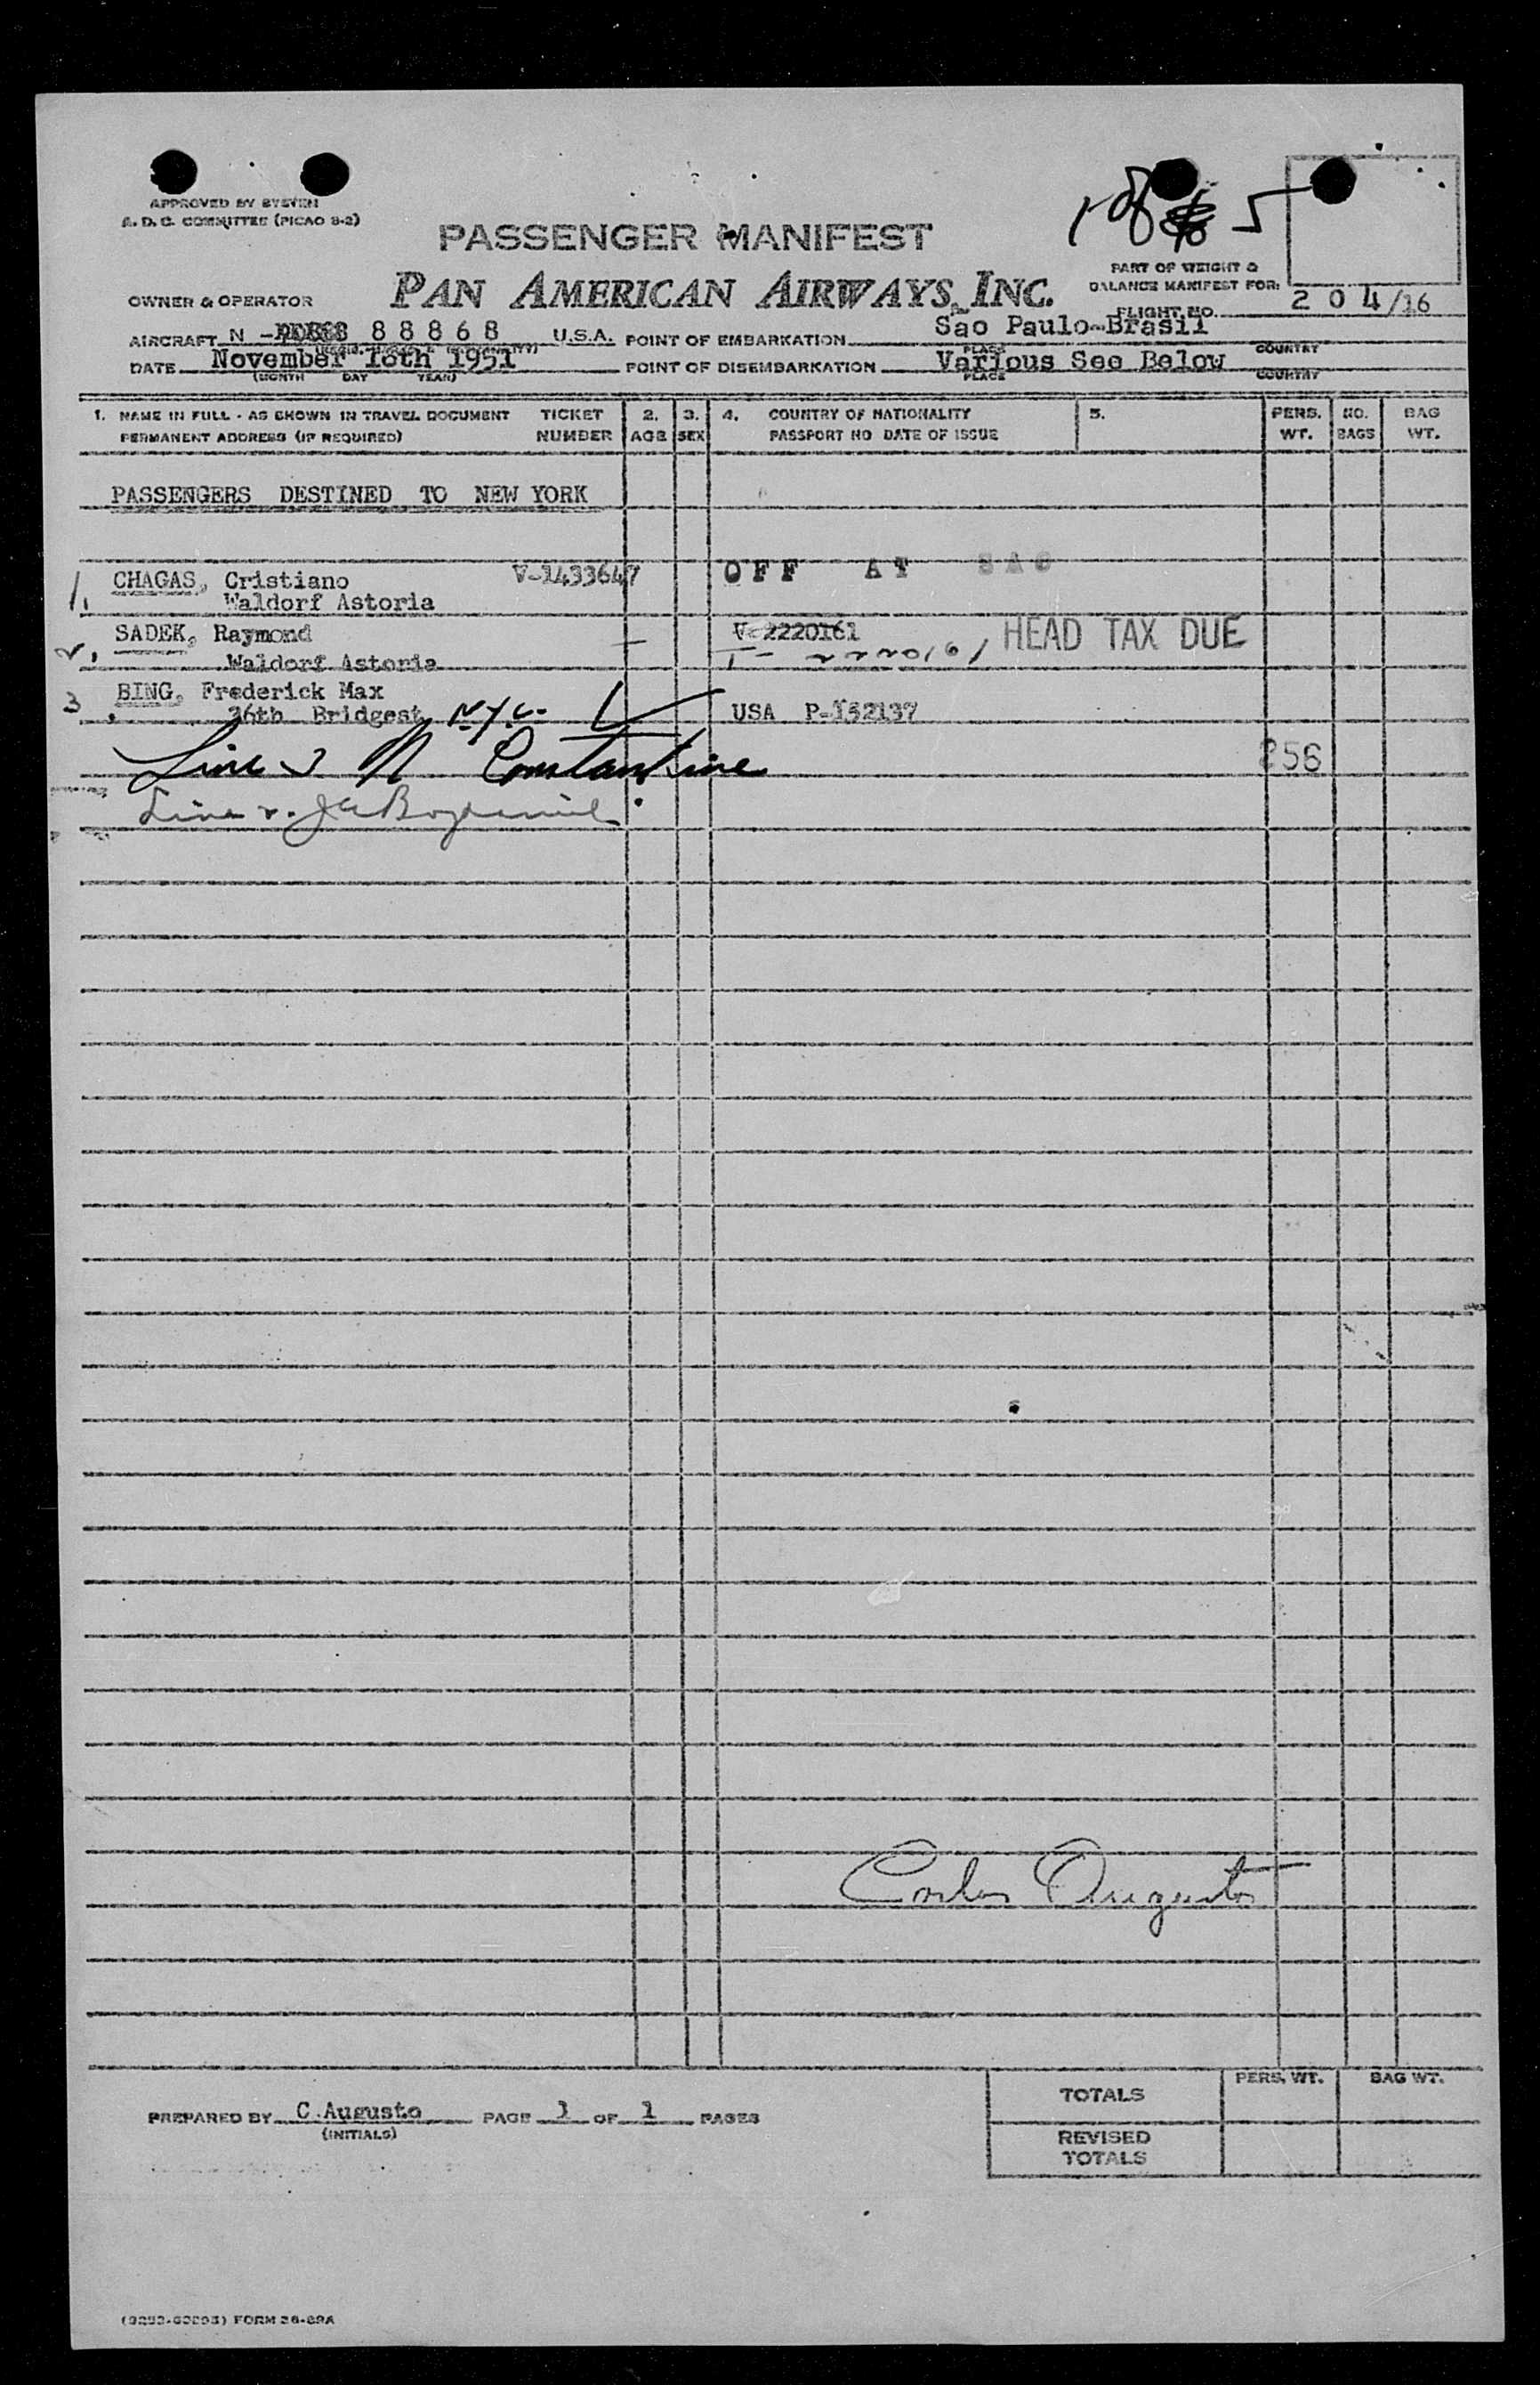 APPROVED BY SYSTEM
A. D. C. COMMITTEE (PICAO 8-2)
1 of 5
PASSENGER MANIFEST
PAN AMERICAN AIRWAYS, INC.
PART OF WEIGHT &
BALANCE MANIFEST FOR:
FLIGHT NO. 204/16
OWNER & OPERATOR
AIRCRAFT N - 88868 U.S.A. POINT OF EMBARKATION Sao Paulo-Brasil
PLACE COUNTRY
DATE November 16th 1951 POINT OF DISEMBARKATION Various See Below
(MONTH DAY YEAR) PLACE COUNTRY
1. NAME IN FULL - AS SHOWN IN TRAVEL DOCUMENT TICKET 2. 3. 4. COUNTRY OF NATIONALITY 5. PERS. NO. BAG
PERMANENT ADDRESS (IF REQUIRED) NUMBER AGE SEX PASSPORT NO DATE OF ISSUE WT. BAGS WT.
PASSENGERS DESTINED TO NEW YORK
1. CHAGAS, Cristiano V-1433647 OFF AT
Waldorf Astoria
2. SADEK, Raymond V-2220161 HEAD TAX DUE
Waldorf Astoria T- 2220161
3. BING, Frederick Max
26th Bridgest N.Y.C. USA P-152137
Line 3 N Constantine 256
Line 2.
Carlos Augusto
TOTALS PERS. WT. BAG WT.
PREPARED BY C.Augusto PAGE 1 OF 1 PAGES
(INITIALS)
REVISED
TOTALS
FORM 26-89A